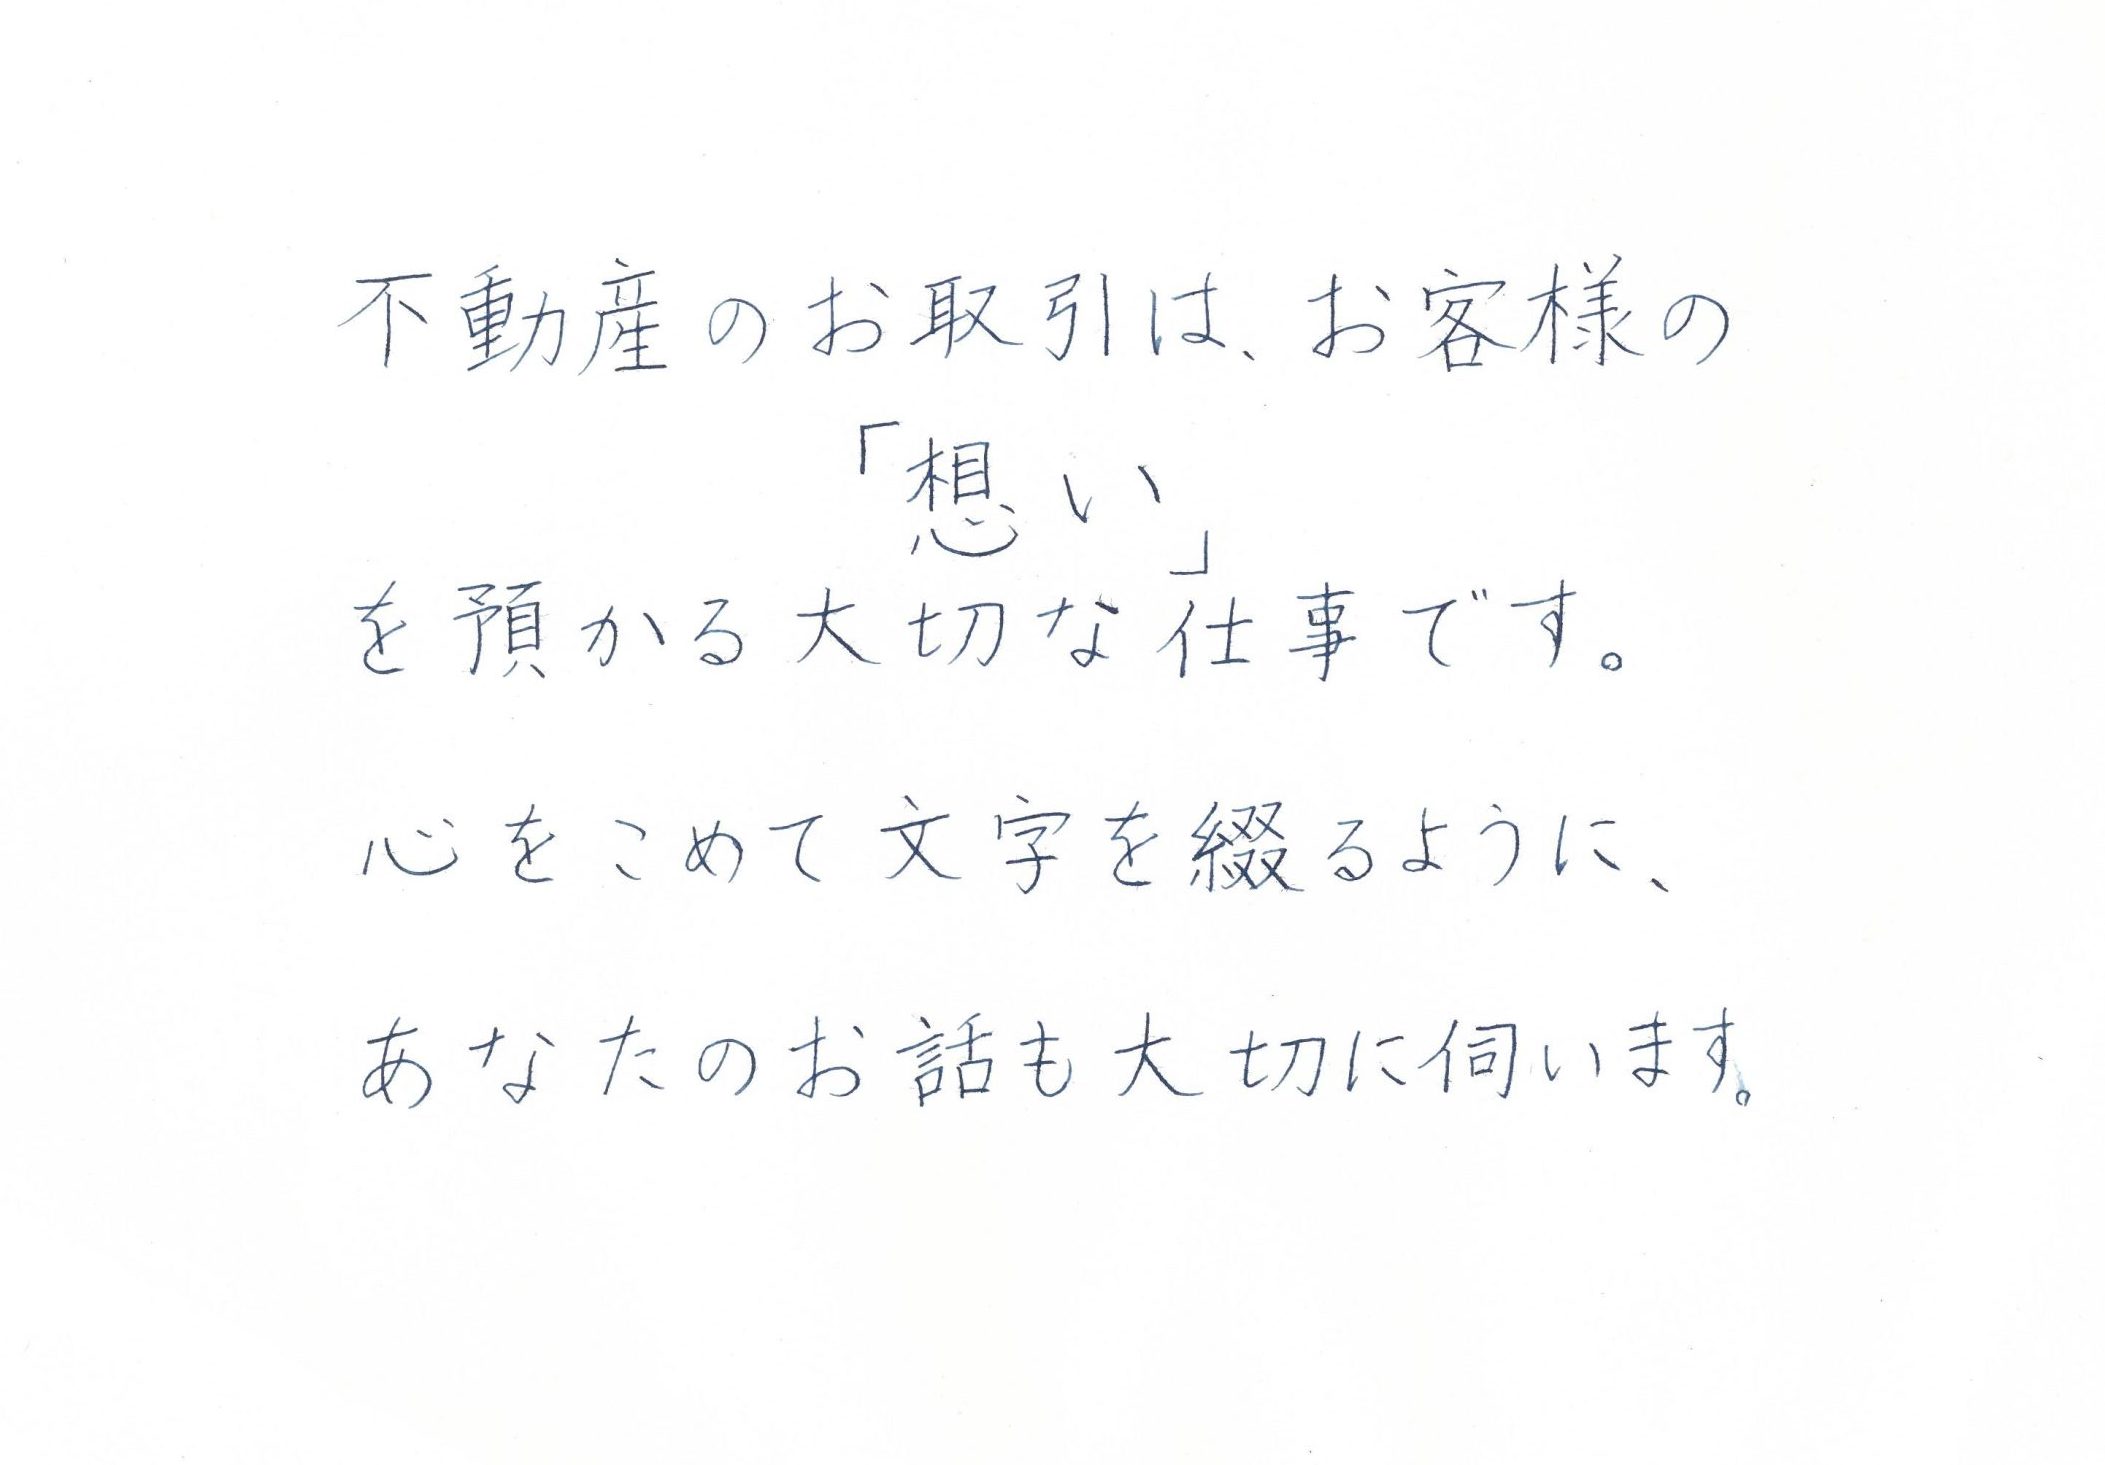 不動産のお取引は、お客様の
「想い」
を預かる大切な仕事です。
心をこめて文字を綴るように、
あなたのお話も大切に伺います。